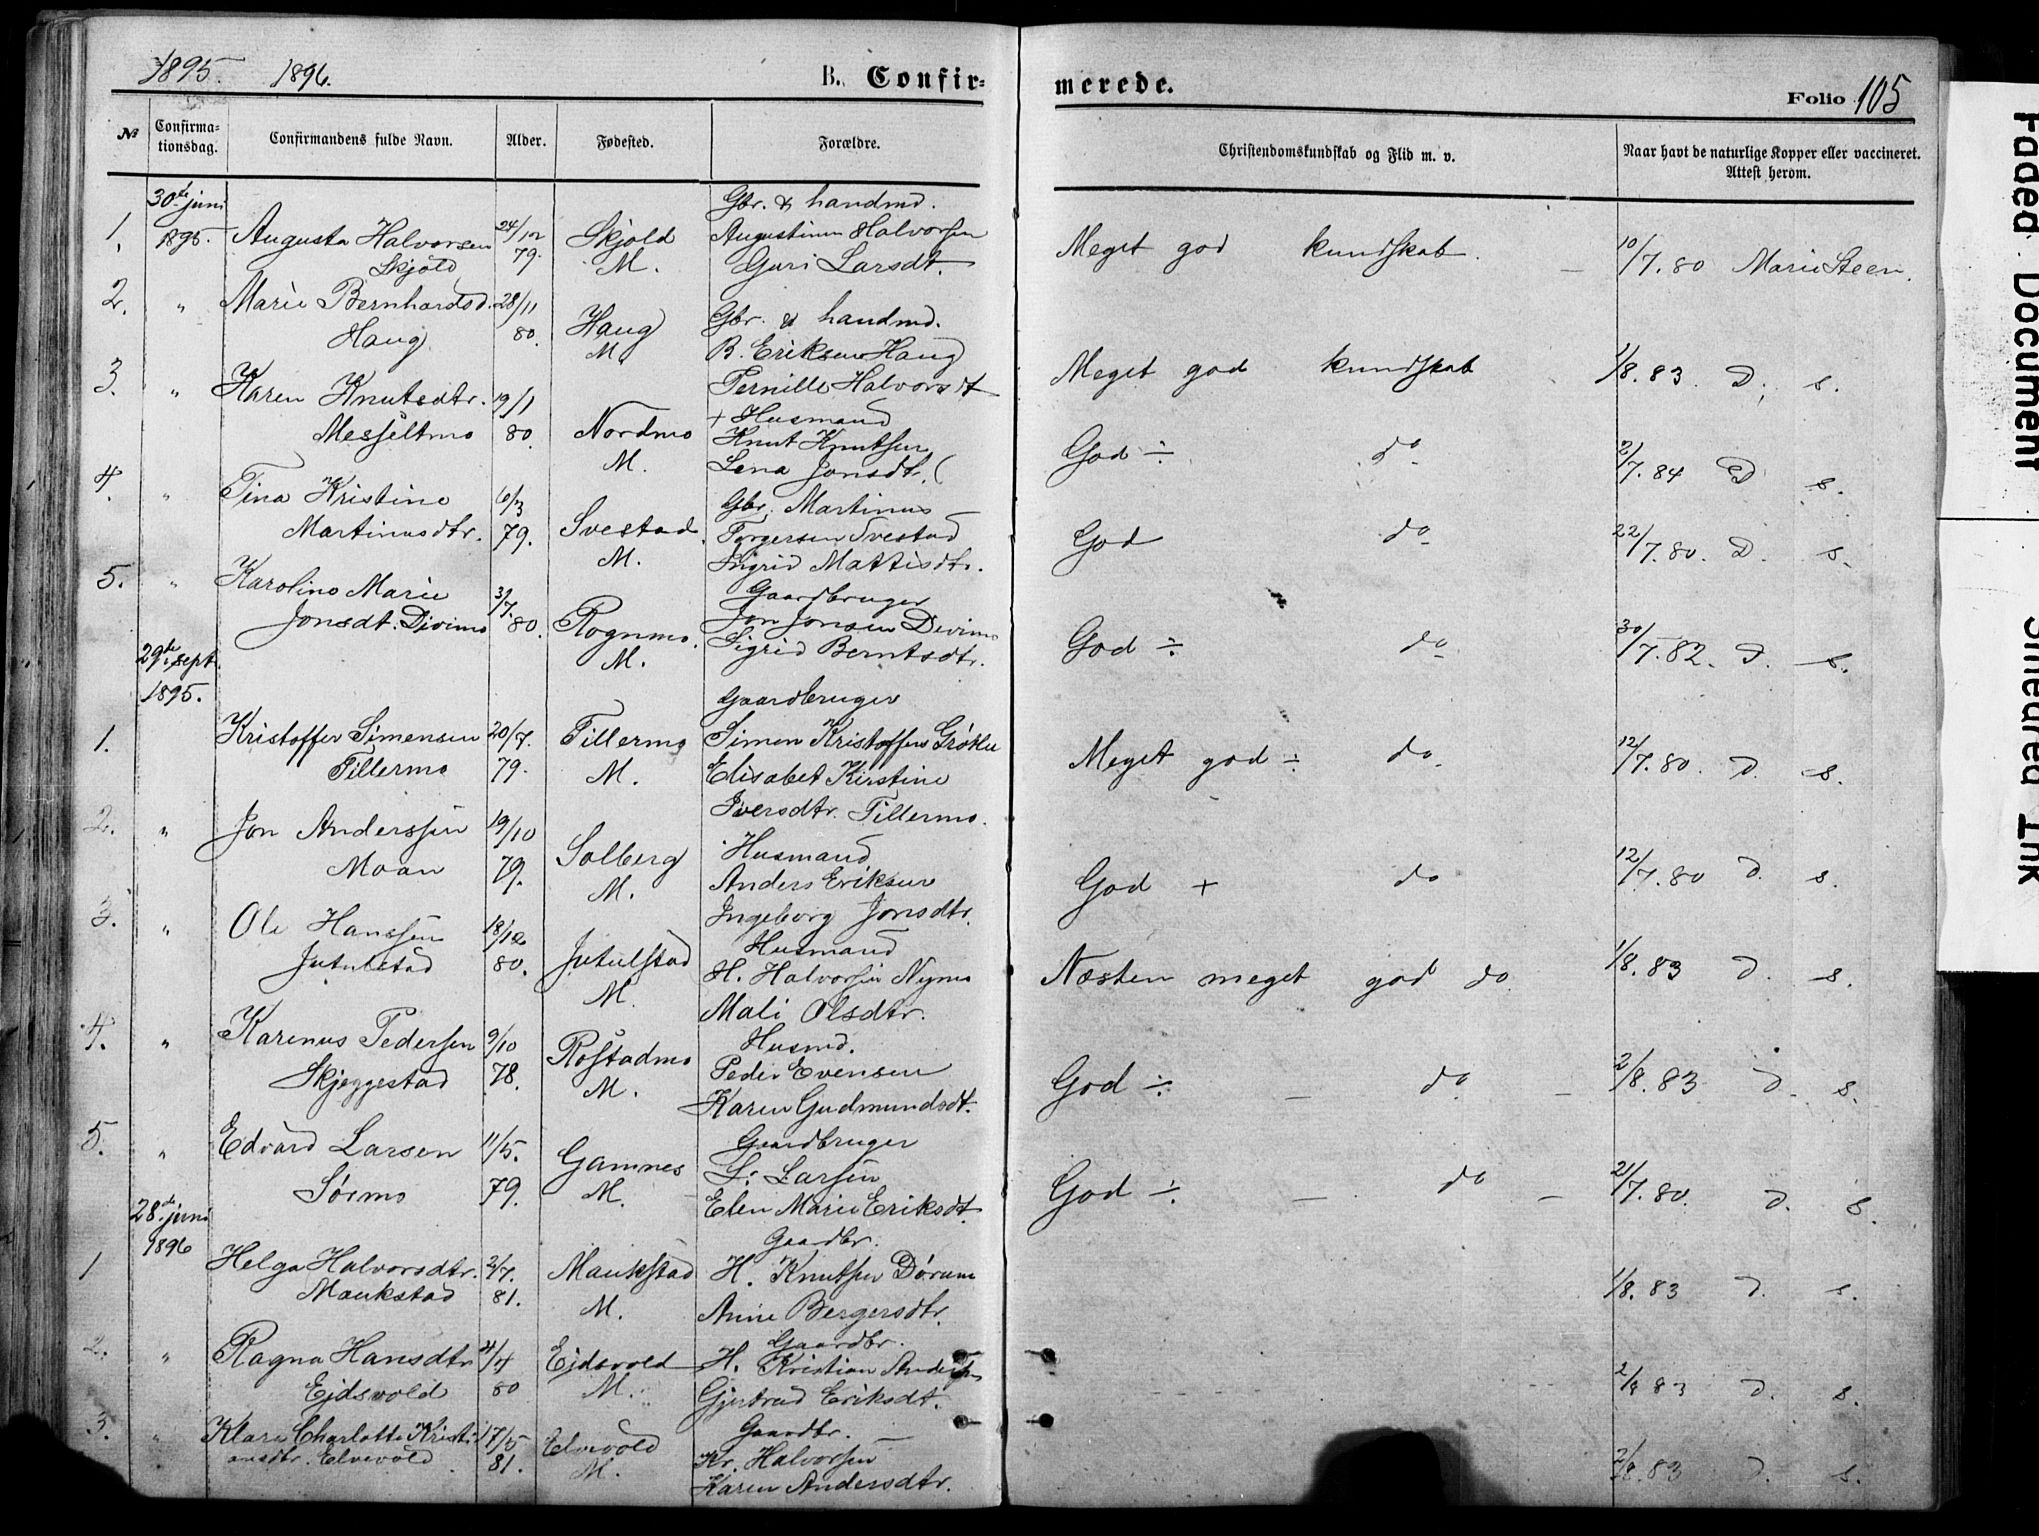 1895. 1896. B. Confir- merede. Folio 105
No Confirma-tionsdag. Confirmandens fulde Navn. Alder. Fødested. Forældre. Christendomskundskab og Flid m. v. Naar havt de naturlige Kopper eller vaccineret. Attest herom.
30te juni Gbr. & handmd.
1. 1895. Augusta Halvorsen 24/12 Skjold Augustinus Halvorsen Meget god kundskab. 10/7.80 Marie Steen.
Skjold 79. M. Guri Larsdt.
2. " Marie Bernhardsd. 28/11 Haug Gbr. & handmd.
Haug 80. M. B. Eriksen Haug Meget god kundskab 1/8.83 D. s.
3. " Karen Knutsdtr. 19/1 Pernille Halvorsdt
Messeltmo 80. Nordmo + Husmand
M. Knut Knutsen God ÷ do 2/7.84 D s.
Lena Jonsdt.
4. " Tina Kristine 6/3 Gbr. Martinus
Martinusdtr. 79. Svestad. Torgersen Svestad God do 22/7.80. D. s.
M. Ingrid Mattisdtr.
5. " Karoline Marie 31/7. Gaardbruger
Jonsdt. Divimo 80. Rognmo. Jon Jonsen Divimo God ÷ do 30/7.82. D. s.
M. Sigrid Berntsdtr.
29de sept.
1895. Gaardbruger
1. Kristoffer Simensen 20/7. Tillermo Simen Kristoffers Grøtlie Meget god ÷ do. 12/7.80. D. s.
Tillermo 79. M. Elisabet Kirstine
Iversdtr. Tillermo.
2. " Jon Anderssen 19/10 Solberg Husmand
Moan 79. M. Anders Eriksen God + do 12/7.80 D. s.
Ingeborg Jonsdtr.
3. " Ole Hanssen 18/12 Jutulstad Husmand
Jutulstad 80. M. H. Halvorsen Nymo Næsten meget god do. 1/8.83 D. s.
Mali Olsdtr.
4. " Karenus Pedersen 9/10 Rostadmo Husmd.
Skjeggestad 78. M. Peder Evensen God ÷ — do — 2/8.83 D. s.
Karen Gudmundsdt.
5. " Edvard Larsen 11/5. Gamnes Gaardbruger
Sørmo 79. M. L. Larsen God ÷. — do — 21/7.80. D. s.
Elen Marie Eriksdt.
28de juni Gaardbr.
1 1896 Helga Halvorsdtr. 2/7. Maukstad H. Knutsen Dørum
Maukstad 81. M. Anne Bergersdtr. 1/8.83 D. s.
2. " Ragna Hansdtr 4/4 Ejdsvold Gaardbr.
Ejdsvold 80 M. H. Kristian Andersen 2/8 83 D. s.
Gjertrud Eriksdt.
3. " Klara Charlotte Kristi- 17/5 Elvevold Gaardbr.
ansdtr. Elvevold 81. M. Kr. Halvorsen 2/8.83 D. s.
Karen Andersdtr.
Faded Document
Smeared Ink